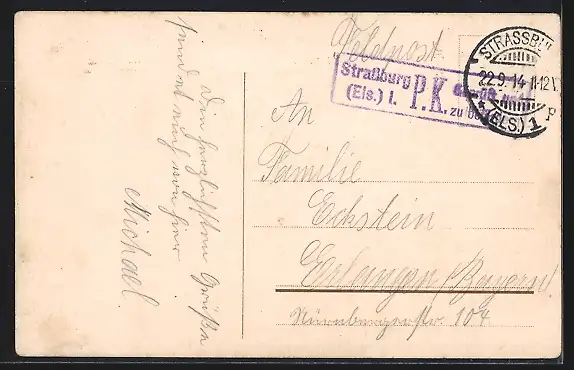 Feldpost.
STRASSBU
22.9.14 11-12 V.
* (ELS.) 1 P
Straßburg
(Els.) 1.
P.K.
zu be
An
Familie
Eckstein
Erlangen (Bayern)
Nürnbergerstr. 104
Die herzlichsten Grüße
sendet euch von hier
Michael.